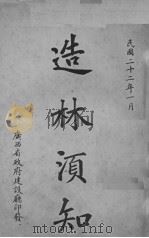 民國二十二年一月
造林須知
廣西省政府建設廳印發
www.mtoou.info